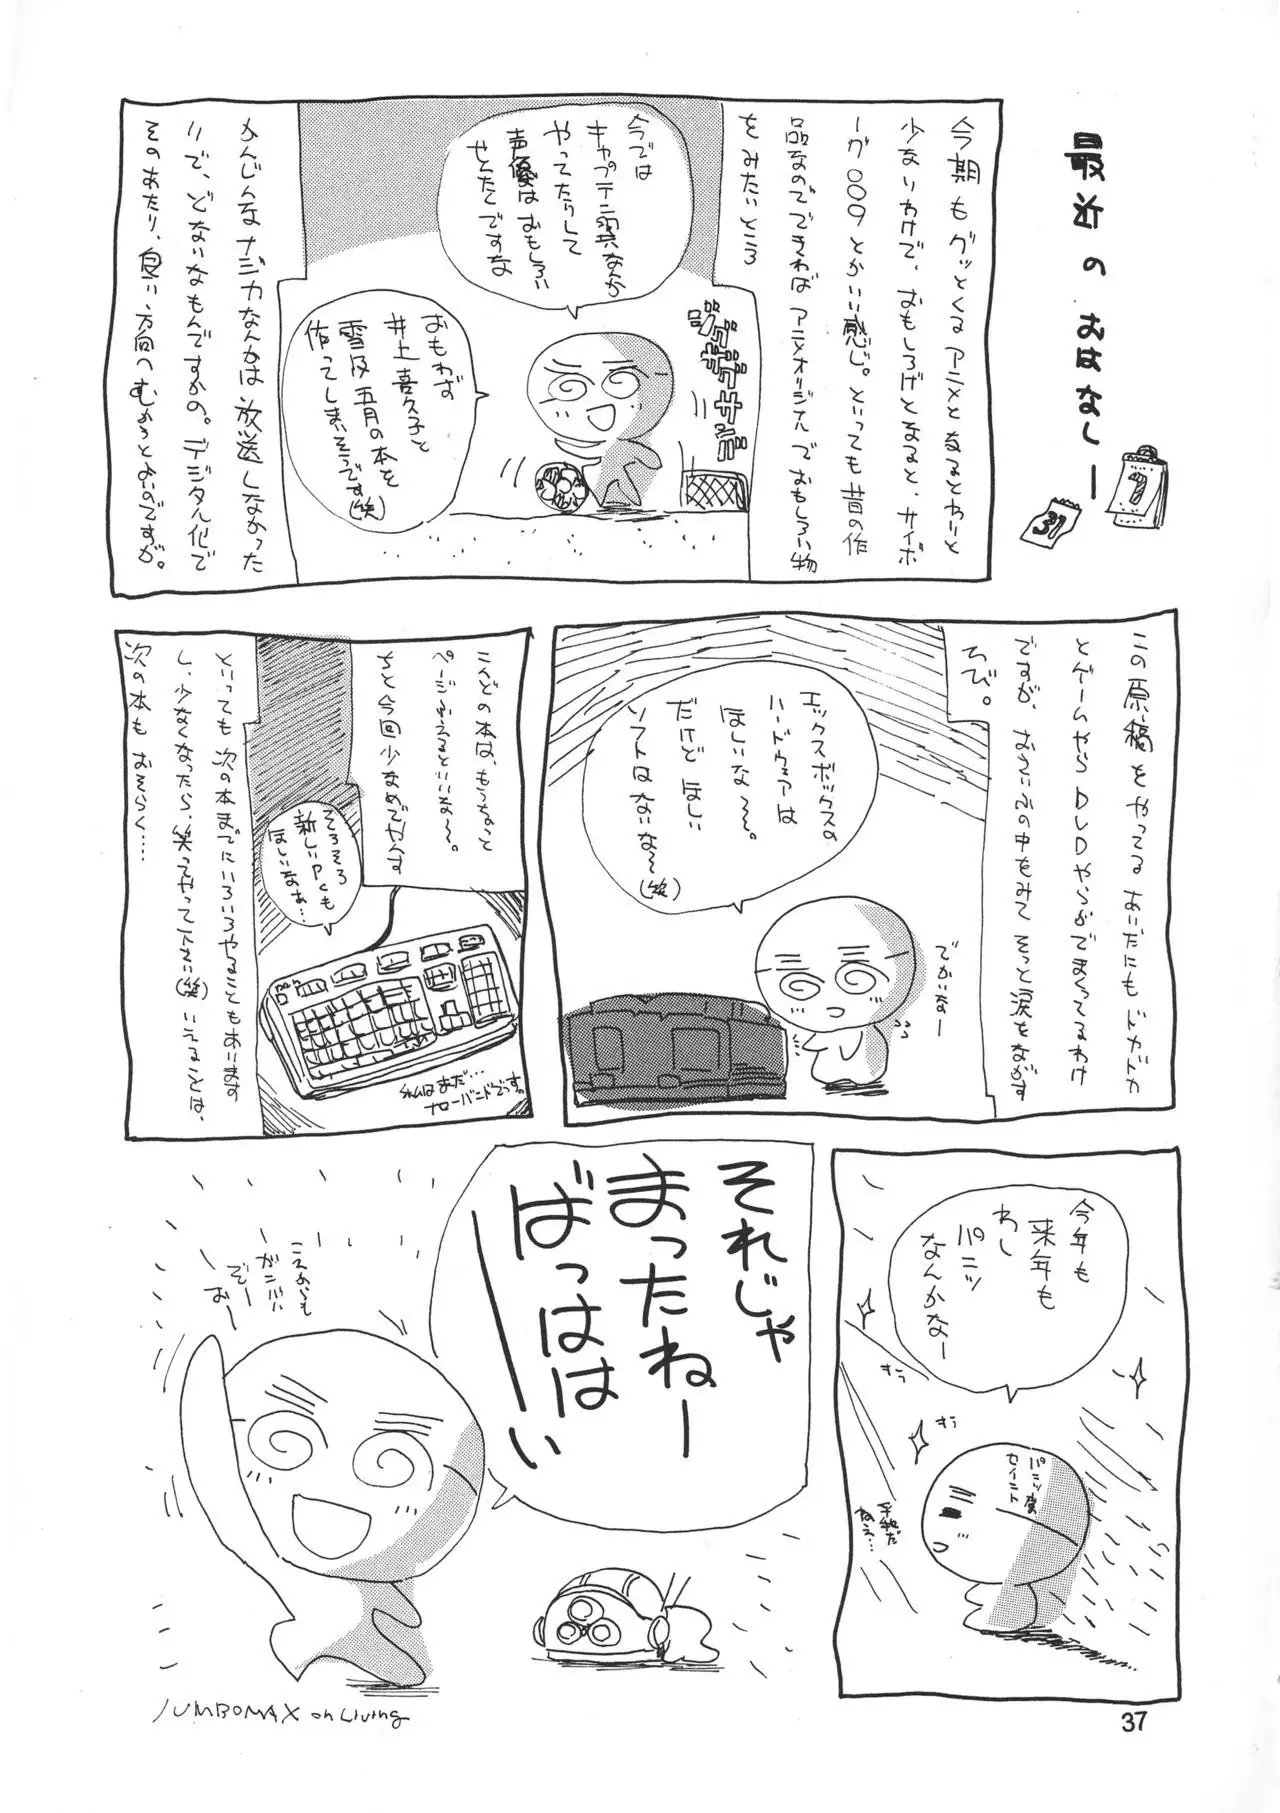 最近のおはなしー
7
31
今期もグッとくるアニメとなるとわりと
少ないわけで、おもしろげとなると、サイボ
ーグ009とかいい感じ。といっても昔の作
品なのでできればアニメオリジナルでおもしろい物
をみたいところ
今では
キャプテン翼なんか
やってたらして
声優は おもしろい
せんたくですな
おもわず
井上喜久子と
雪及 五月の本を
作ってしまいそうです(笑)
かんじんなナジカなんかは放送しなかった
りで、どないなもんですかの。デジタル化で
そのあたり、良い方向へむかうとよいのですが。
この原稿をやってるあいだにもドカドカ
とゲームやらDVDやらがでまくってるわけ
ですが、おさいふの中をみてそっと涙をながす
エックスボックスの
ハードウェアは
ほしいな〜。
だけど ほしい
ソフトはないな〜(笑)
でかいなー
こんどの本は、もうちょっと
ページふえるといいな〜。
ちと今回少なめでやんす
そろそろ
新しいPCも
ほしいなぁ…
といっても次の本までにいろいろやることもあります
し、少なくなったら、笑ってやって下さい(笑)いえることは、
次の本も おそらく……
まだ…
ナローバンドでっす。
今年も
来年も
わし
パニッ
なんかなー
すぅ
すぅ
平和だ
ねえ…
それじゃ
まったねー
ばっははーい
これからも
ガンバル
ぞー
おー
JUMBOMAX on Living
37